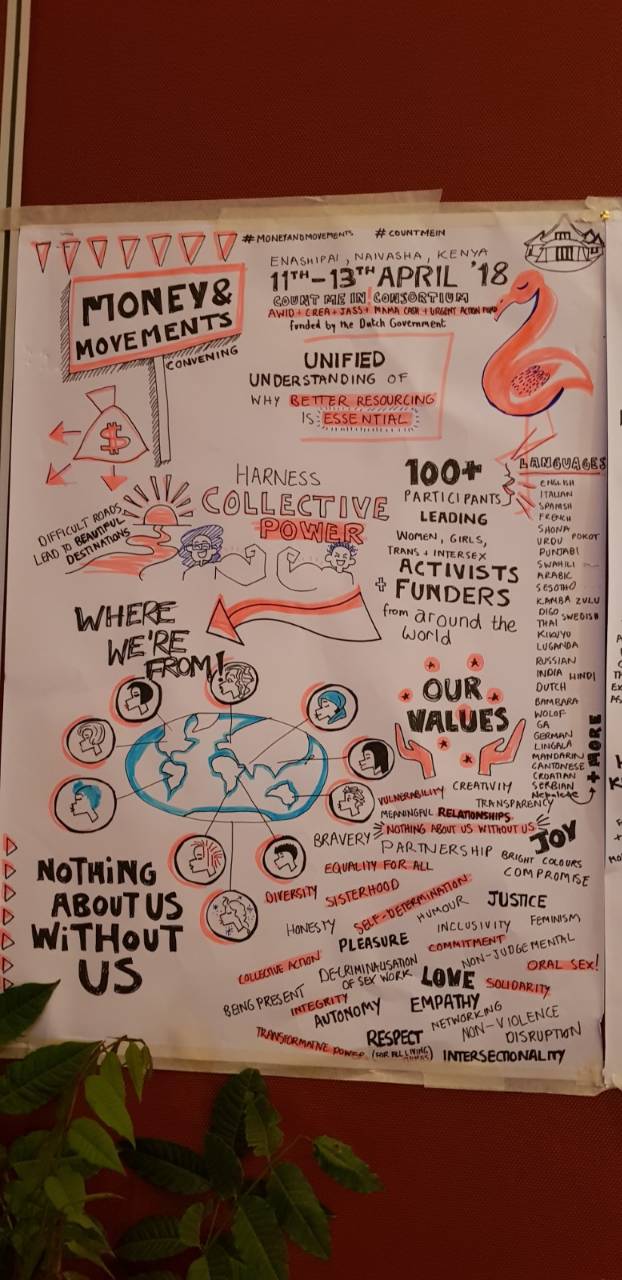 #MONEYANDMOVEMENTS #COUNTMEIN
ENASHIPAI, NAIVASHA, KENYA
11TH-13TH APRIL '18
COUNT ME IN CONSORTIUM
AWID + CREA + JASS + MAMA CASH + URGENT ACTION FUND
funded by the Dutch Government
MONEY &
MOVEMENTS
CONVENING
$
UNIFIED
UNDERSTANDING OF
WHY BETTER RESOURCING
IS ESSENTIAL
HARNESS
COLLECTIVE
POWER
DIFFICULT ROADS
LEAD TO BEAUTIFUL
DESTINATIONS
100+
PARTICIPANTS
LEADING
WOMEN, GIRLS,
TRANS + INTERSEX
ACTIVISTS
+ FUNDERS
from around the
world
LANGUAGES
ENGLISH
ITALIAN
SPANISH
FRENCH
SHONA
URDU POKOT
PUNJABI
SWAHILI
ARABIC
SESOTHO
KAMBA ZULU
DIGO SWEDISH
THAI
KIKUYU
LUGANDA
RUSSIAN
INDIA HINDI
DUTCH
BAMBARA
WOLOF
GA
GERMAN
LINGALA
MANDARIN
CANTONESE
CROATIAN
SERBIAN
Nepalese
+ MORE
WHERE
WE'RE
FROM!
OUR
VALUES
VULNERABILITY CREATIVITY
TRANSPARENCY
MEANINGFUL RELATIONSHIPS
NOTHING ABOUT US WITHOUT US
BRAVERY PARTNERSHIP JOY
EQUALITY FOR ALL BRIGHT COLOURS
COMPROMISE
DIVERSITY SISTERHOOD
SELF-DETERMINATION
HUMOUR JUSTICE
HONESTY INCLUSIVITY FEMINISM
PLEASURE COMMITMENT
NON-JUDGEMENTAL
COLLECTIVE ACTION
DECRIMINALISATION
OF SEX WORK
LOVE ORAL SEX!
SOLIDARITY
BEING PRESENT INTEGRITY
AUTONOMY EMPATHY
NETWORKING
NON-VIOLENCE
DISRUPTION
TRANSFORMATIVE POWER RESPECT
(FOR ALL LIVING
INTERSECTIONALITY
NOTHING
ABOUT US
WITHOUT
US